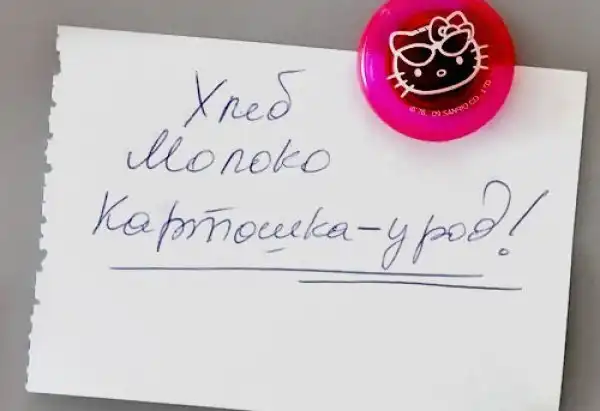 Хлеб
Молоко
Картошка-урод!
©'76, '09 SANRIO CO., LTD